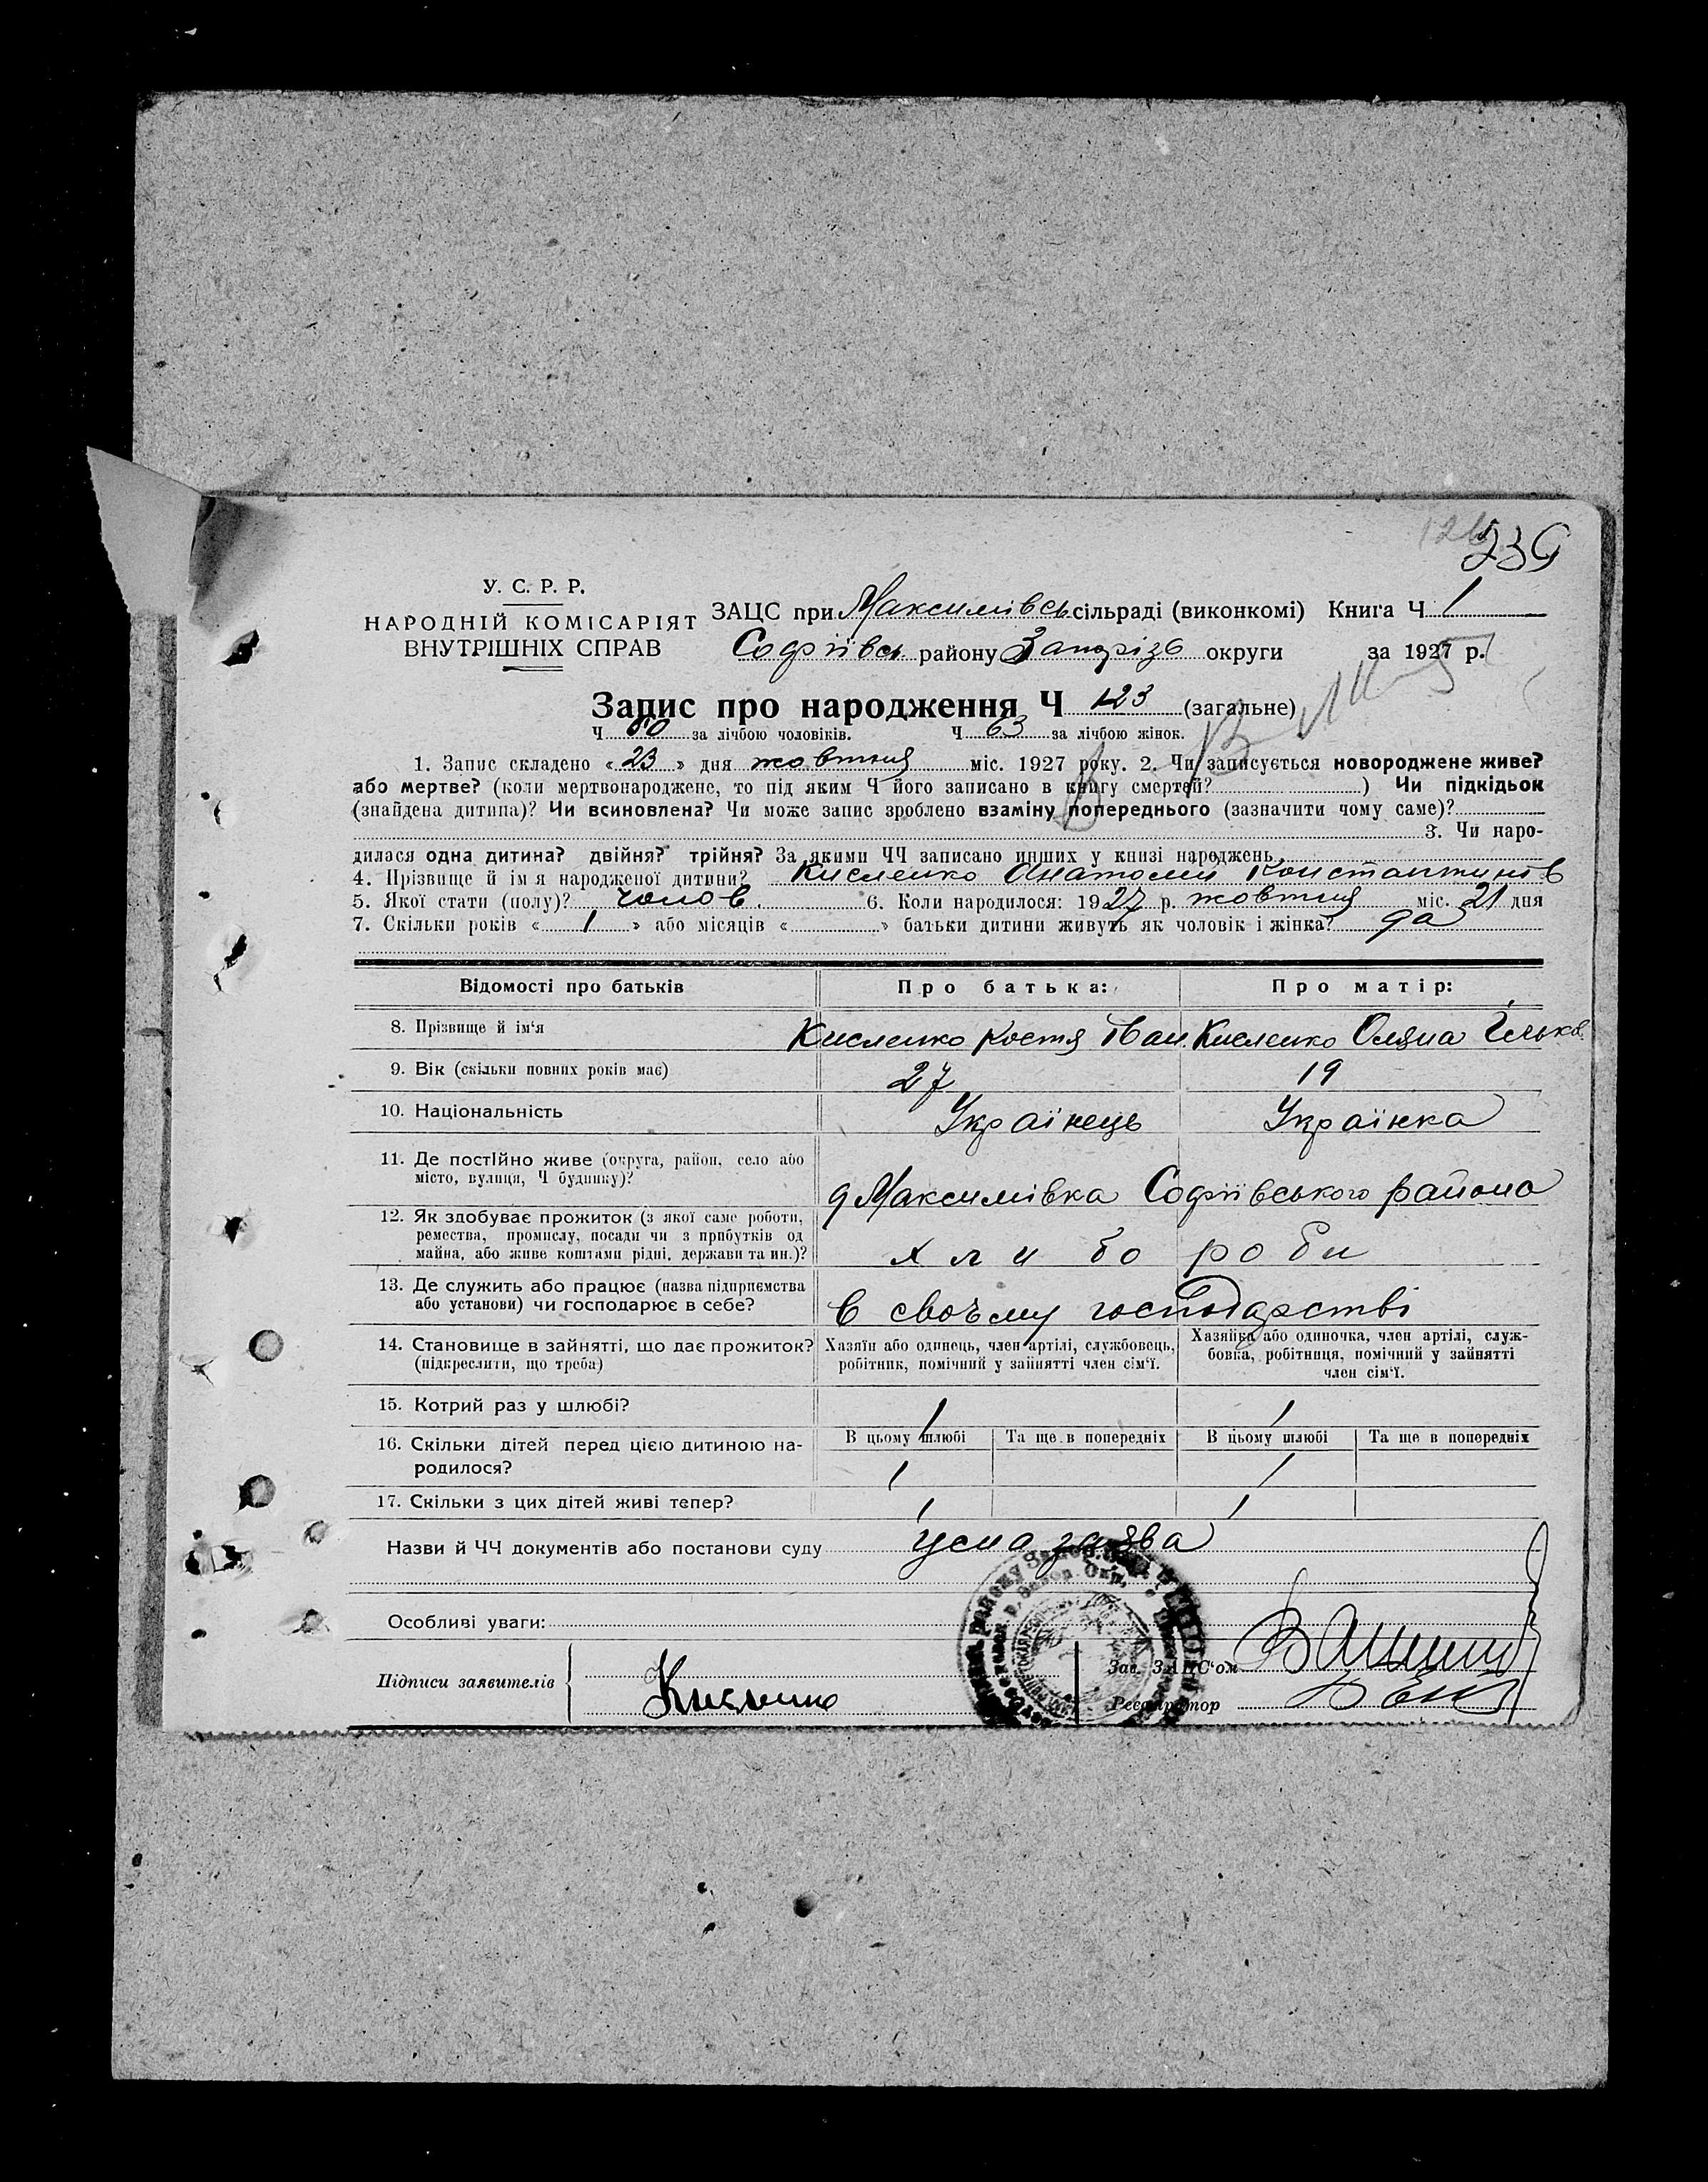 239
У. С. Р. Р.
НАРОДНІЙ КОМІСАРІЯТ
ВНУТРІШНІХ СПРАВ
ЗАЦС при Максимівсь сільраді (виконкомі) Книга Ч 1
Софіївсь району Запоріз округи за 1927 р.
Запис про народження Ч 123 (загальне)
Ч 60 за лічбою чоловіків. Ч 63 за лічбою жінок.
1. Запис складено « 23 » дня жовтня міс. 1927 року. 2. Чи записується новороджене живе?
або мертве? (коли мертвонароджене, то під яким Ч його записано в книгу смертей? ) Чи підкідьок
(знайдена дитина)? Чи всиновлена? Чи може запис зроблено взаміну попереднього (зазначити чому саме)?
3. Чи наро-
дилася одна дитина? двійня? трійня? За якими ЧЧ записано инших у книзі народжень
4. Прізвище й ім я народженої дитини? Кисленко Анатолій Константинів
5. Якої стати (полу)? чолов. 6. Коли народилося: 1927 р. жовтня міс. 21 дня
7. Скільки років « 1 » або місяців « » батьки дитини живуть як чоловік і жінка? да
Відомості про батьків
Про батька:
Про матір:
8. Прізвище й ім'я Кисленко Костя Іван. Кисленко Оляна
9. Вік (скільки повних років має) 27 19
10. Національність Українець Українка
11. Де постійно живе (округа, район, село або
місто, вулиця, Ч будинку)?
д Максимівка Софіївського района
12. Як здобуває прожиток (з якої саме роботи,
ремества, промислу, посади чи з прибутків од
майна, або живе коштами рідні, держави та ин.)?
хлиборобы
13. Де служить або працює (назва підприємства
або установи) чи господарює в себе?
в своъму господарстві
14. Становище в зайнятті, що дає прожиток?
(підкреслити, що треба)
Хазяїн або одинець, член артілі, службовець,
робітник, помічний у зайнятті член сім'ї.
Хазяйка або одиночка, член артілі, служ-
бовка, робітниця, помічний у зайнятті
член сім'ї.
15. Котрий раз у шлюбі? 1 1
16. Скільки дітей перед цією дитиною на-
родилося?
В цьому шлюбі Та ще в попередніх В цьому шлюбі Та ще в попередніх
1 1
17. Скільки з цих дітей живі тепер? 1 1
Назви й ЧЧ документів або постанови суду усна заява
Особливі уваги:
Підписи заявителів
Кисленко
Зав. ЗАЦС'ом
Реєстратор